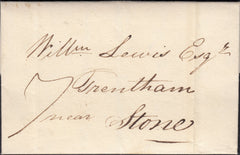 Willm Lewis Esqr
Trentham
7 near Stone